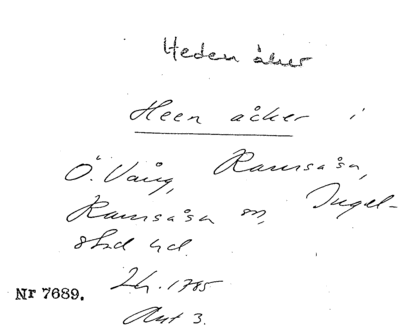 Heden åker
Heen åcker i
Ö. Vång, Ramsåsa,
Ramsåsa sn, Ingel-
stad hd.
Nr 7689. Lh. 1785
Akt 3.